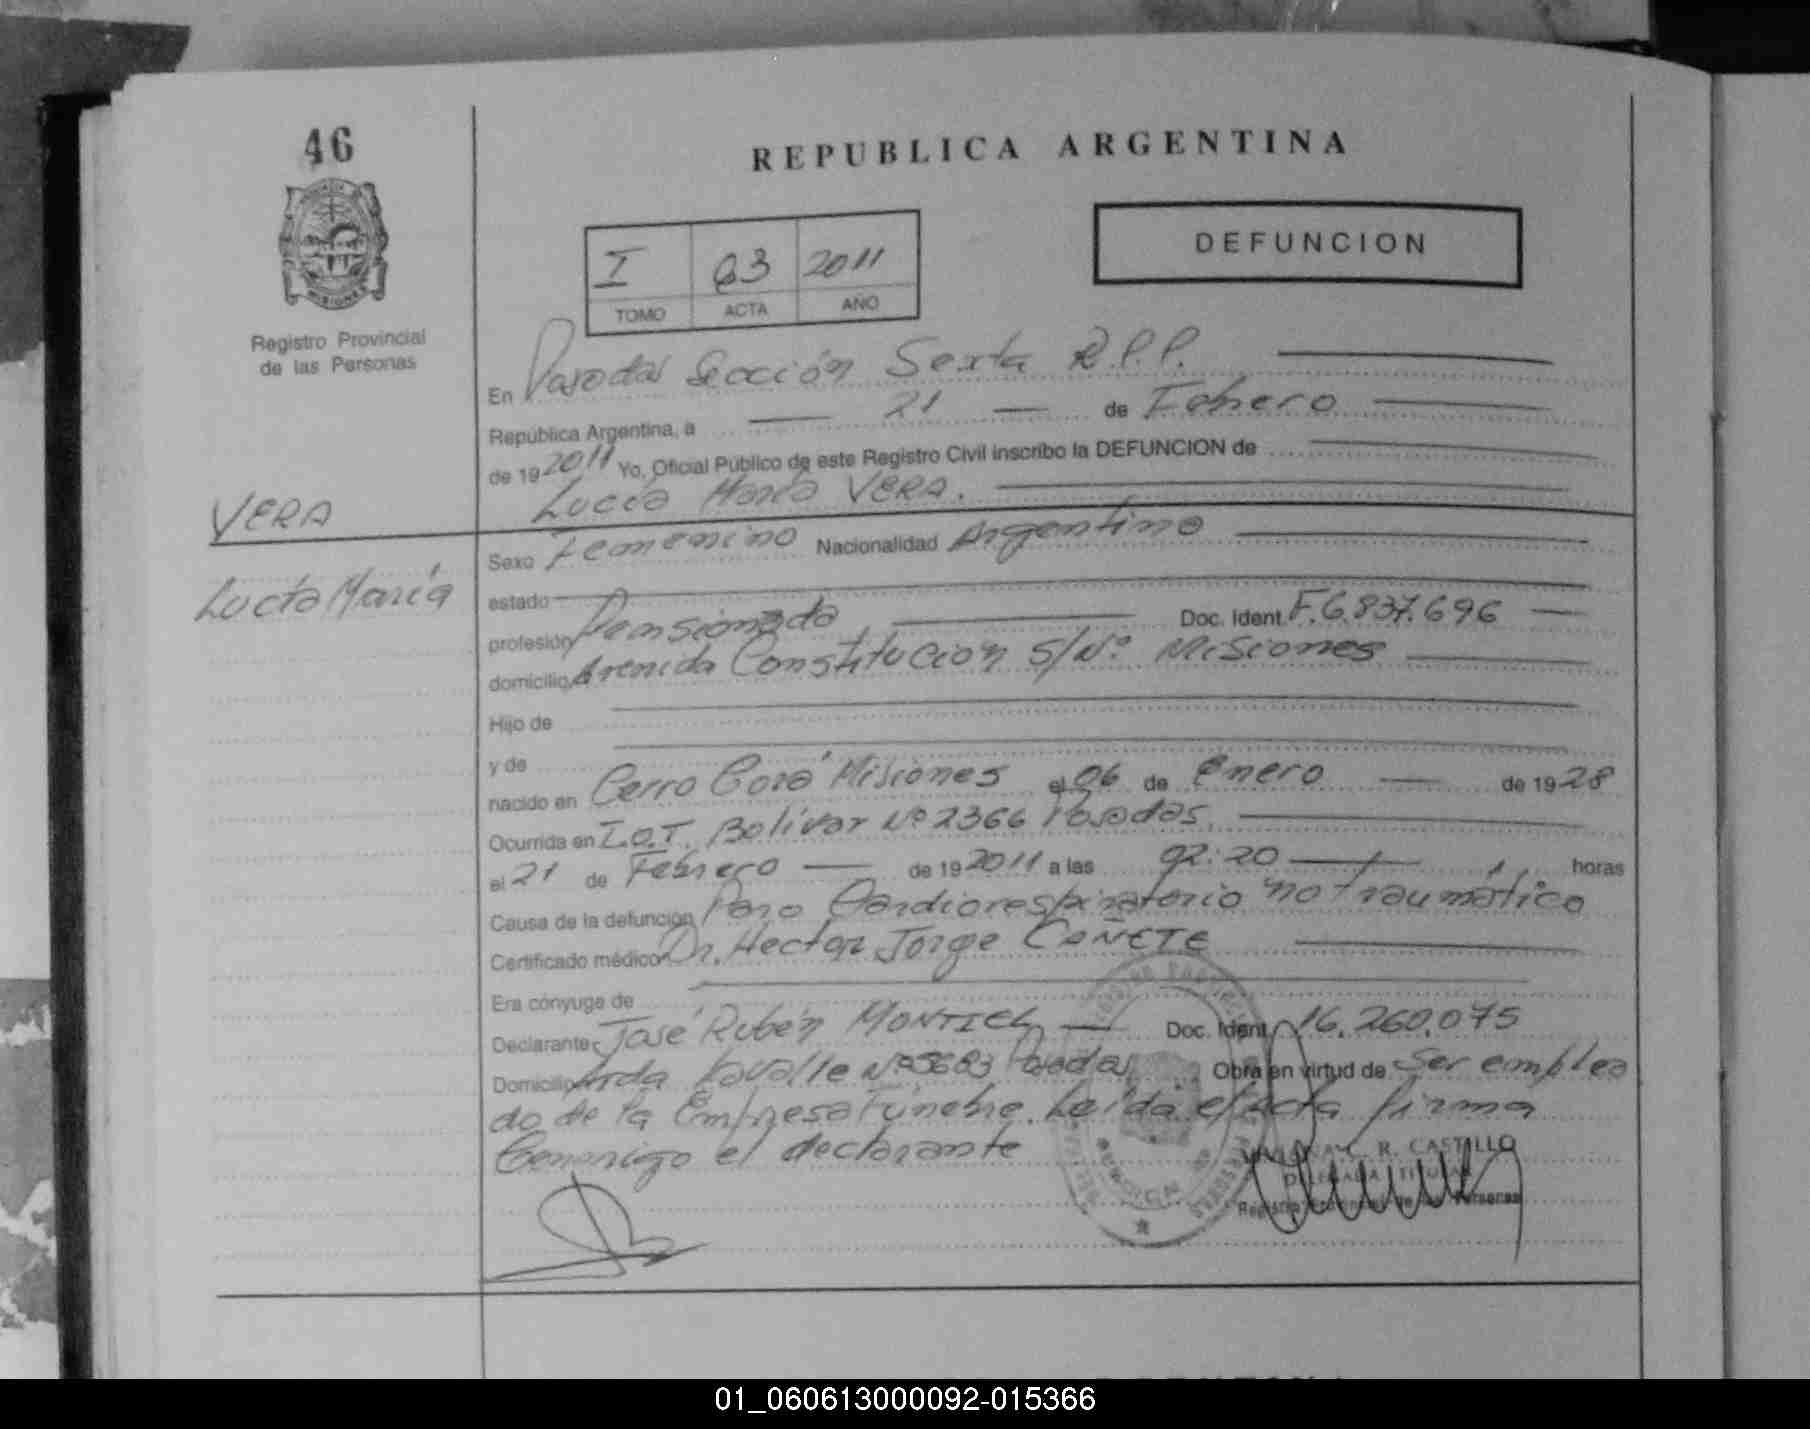 46
REPUBLICA ARGENTINA
DEFUNCION
I 63 2011
TOMO ACTA AÑO
MISIONES
Registro Provincial
de las Personas
En Posadas Sección Sexta R.P.P.
República Argentina, a 21 de Febrero
de 19 2011 Yo, Oficial Público de este Registro Civil inscribo la DEFUNCION de
Lucía María VERA.
VERA
Lucía María
Sexo Femenino Nacionalidad Argentina
estado
profesión Pensionada Doc. Ident. F.6.837.696
domicilio Avenida Constitución S/Nº Misiones
Hijo de
y de
nacido en Cerro Corá Misiones el 06 de Enero de 1928
Ocurrida en I.O.T. Bolívar Nº 2366 Posadas
el 21 de Febrero de 19 2011 a las 02:20 horas
Causa de la defunción Paro Cardiorespiratorio no traumático
Certificado médico Dr. Hector Jorge CAÑETE
Era cónyuge de
Declarante José Rubén MONTIEL Doc. Ident. 16.260.075
Domicilio Avda Lavalle Nº 3683 Posadas Obra en virtud de Ser emplea
do de la Empresa Fúnebre. Leída el acta firma
Conmigo el declarante
R. CASTILLO
DELEGADA TITULAR
Registro Provincial de las Personas
01_060613000092-015366